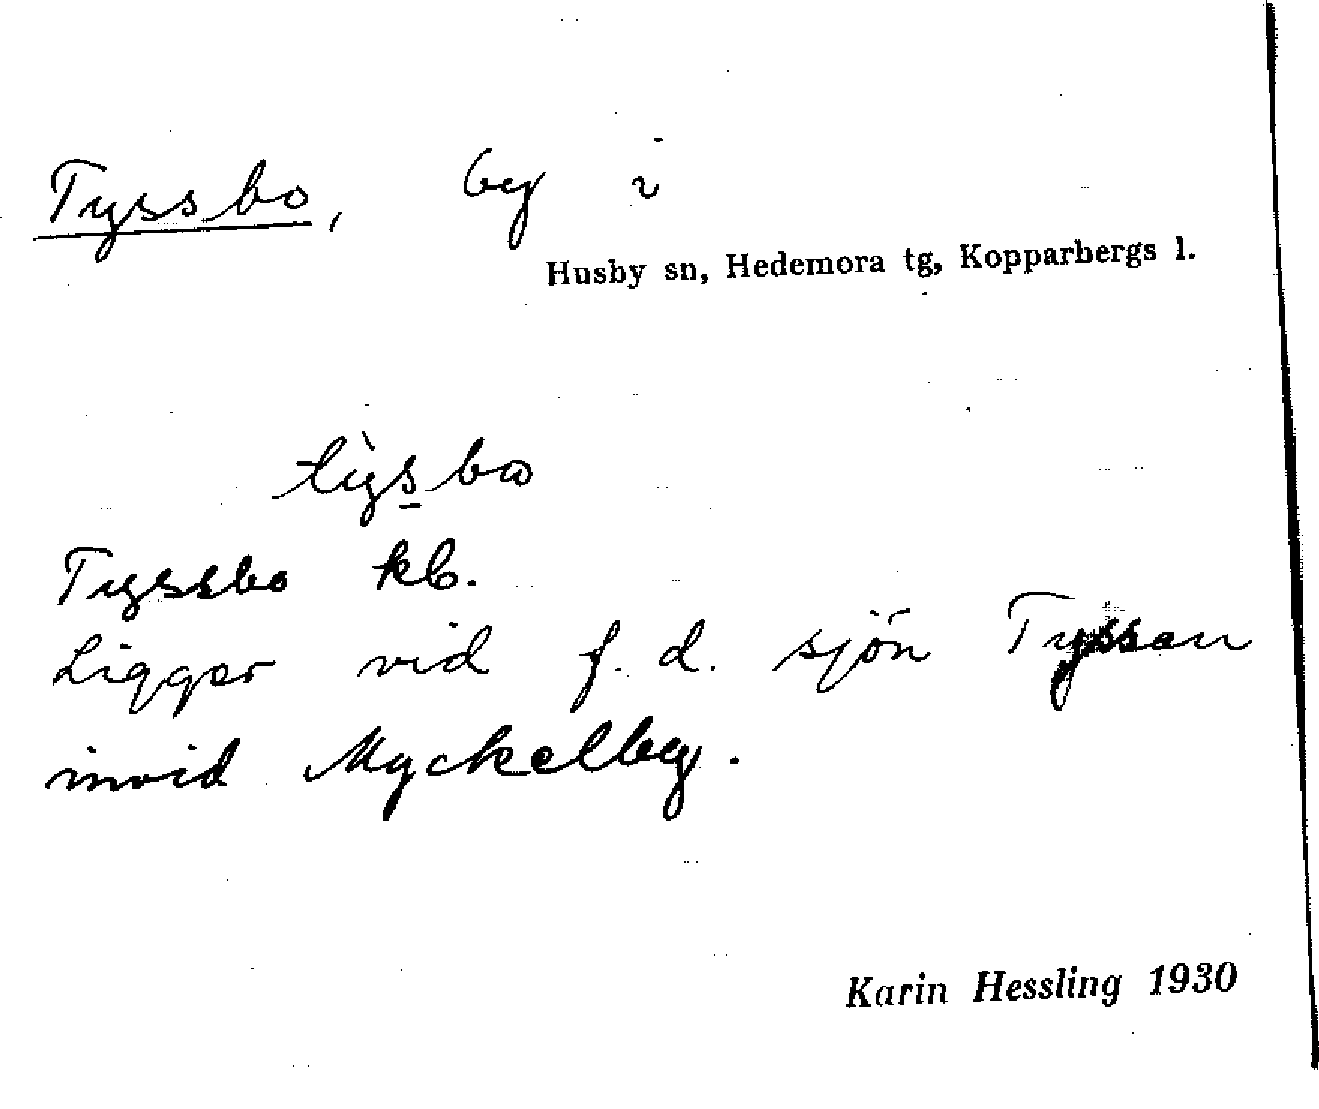 Tyssbo, by i
Husby sn, Hedemora tg, Kopparbergs l.
Tyssbo kb.
Ligger vid f. d. sjön Tyssen
invid Myckelby.
Karin Hessling 1930